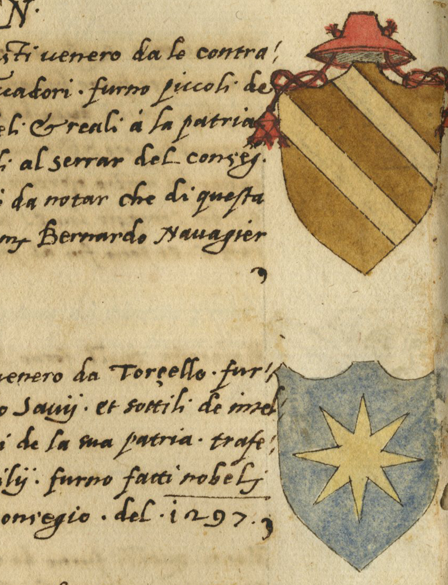 N.
sti venero da le contra
cadori. furno piccoli de
eli & reali à la patria
li al serrar del conseg.
i da notar che di questa
Bernardo Navagier
venero da Torcello. fur
o Savij. et sottili de intel
i de la sua patria. trase
ilij. furno fatti nobeli
onsegio. del. 1297.